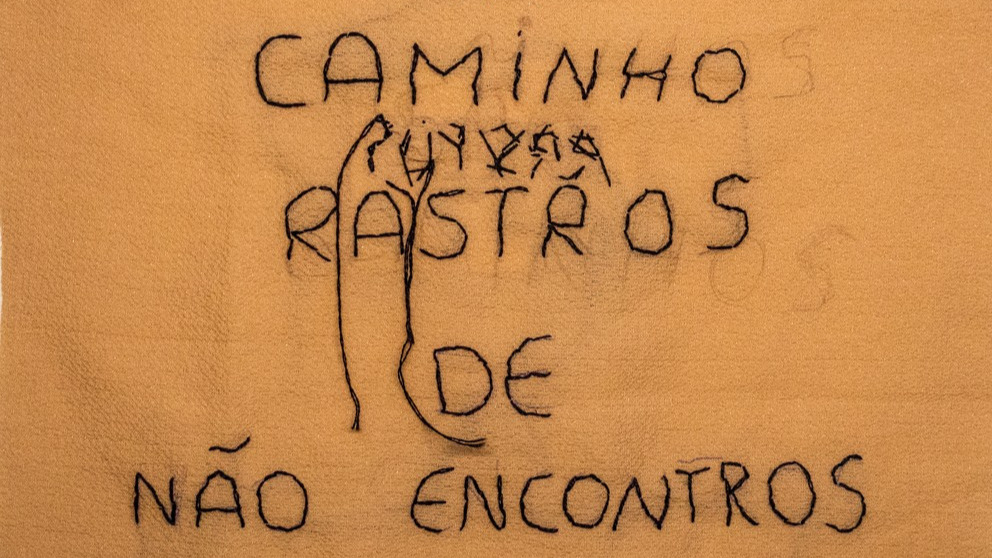 CAMINHO
RASTROS
DE
NÃO ENCONTROS